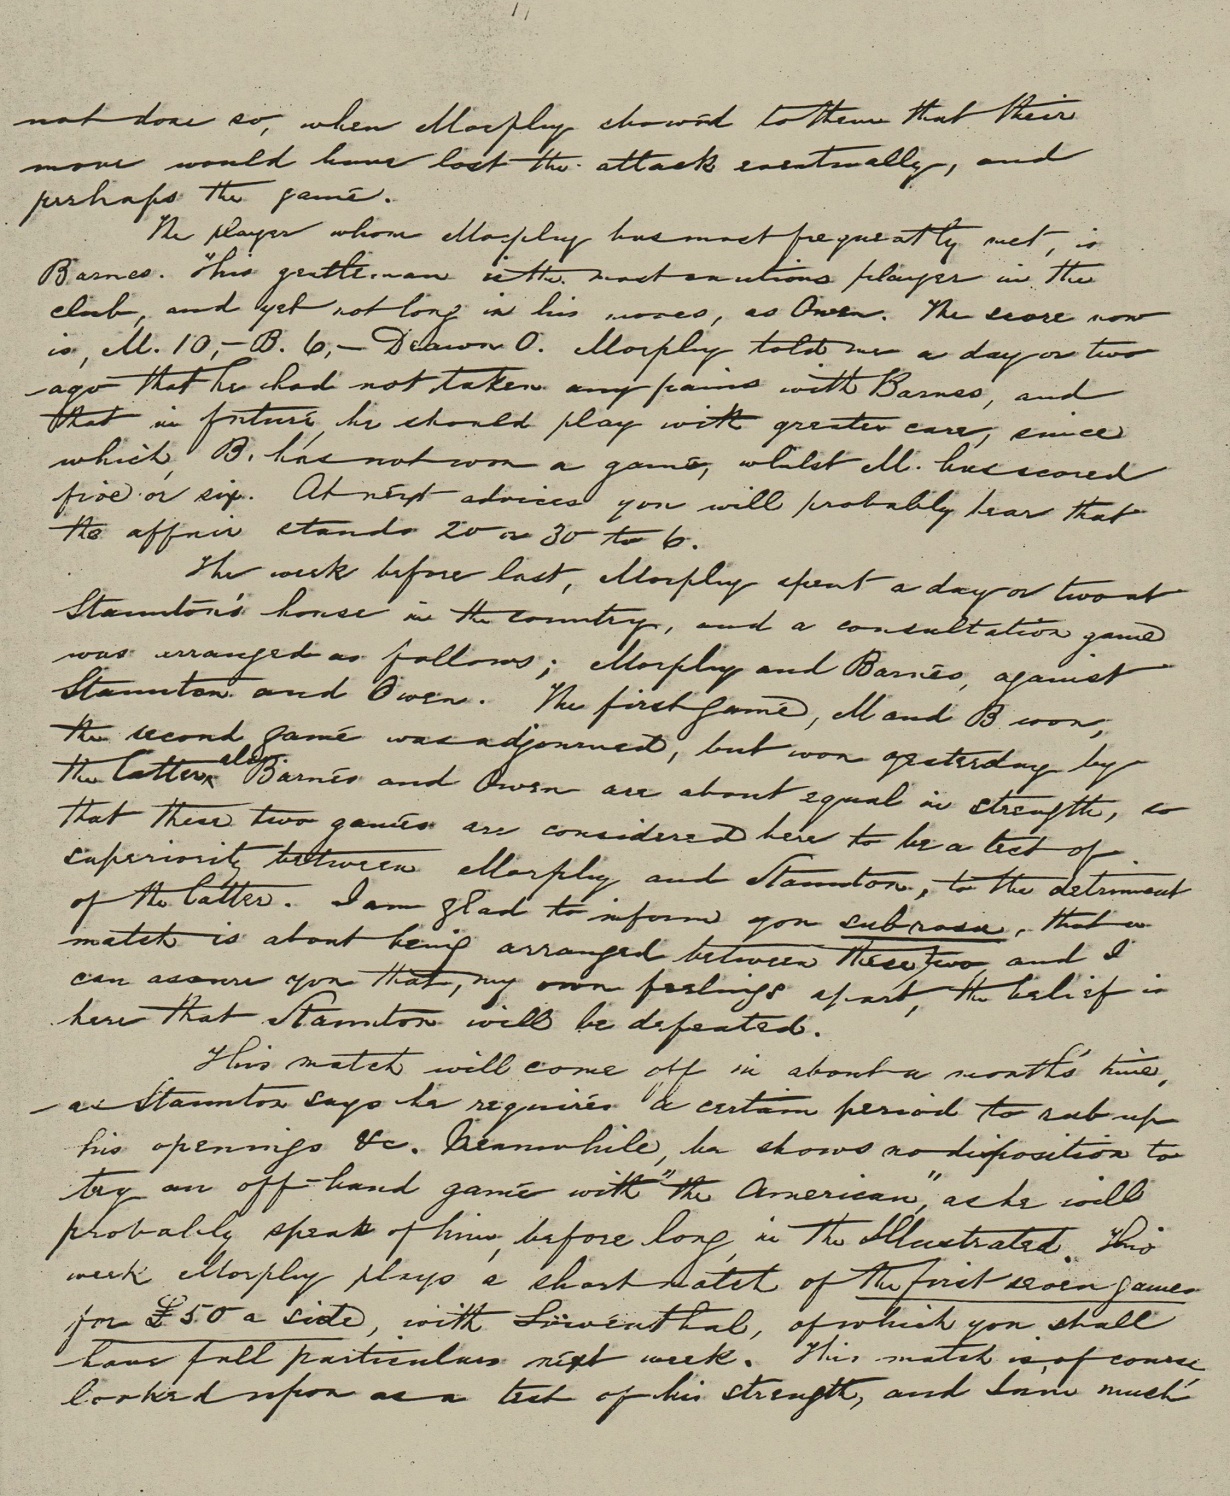 not done so, when Morphy show'd to them that their
move would have lost the attack eventually, and
perhaps the game.
The player whom Morphy has most frequently met, is
Barnes. This gentleman is the most cautious player in the
club, and yet not long in his moves, as Owen. The score now
is, M. 10,– B. 6,– Drawn 0. Morphy told me a day or two
ago that he had not taken any pains with Barnes, and
that in future, he should play with greater care, since
which, B. has not won a game, whilst M. has scored
five or six. At next advices you will probably hear that
the affair stands 20 or 30 to 6.
The week before last, Morphy spent a day or two at
Staunton's house in the country, and a consultation game
was arranged as follows; Morphy and Barnes, against
Staunton and Owen. The first game, M and B won,
the second game was adjourned, but won yesterday by
the latter also. Barnes and Owen are about equal in strength, so
that these two games are considered here to be a test of
superiority between Morphy and Staunton, to the detriment
of the latter. I am glad to inform you sub rosa, that a
match is about being arranged between these two, and I
can assure you that, my own feelings apart, the belief is
here that Staunton will be defeated.
This match will come off in about a month's time,
as Staunton says he requires a certain period to rub up
his openings &c. Meanwhile, he shows no disposition to
try an off-hand game with "the American," as he will
probably speak of him, before long, in the Illustrated. This
week Morphy plays a short match of the first seven games
for £50 a side, with Löwenthal, of which you shall
have full particulars next week. This match is, of course
looked upon as a test of his strength, and I am much